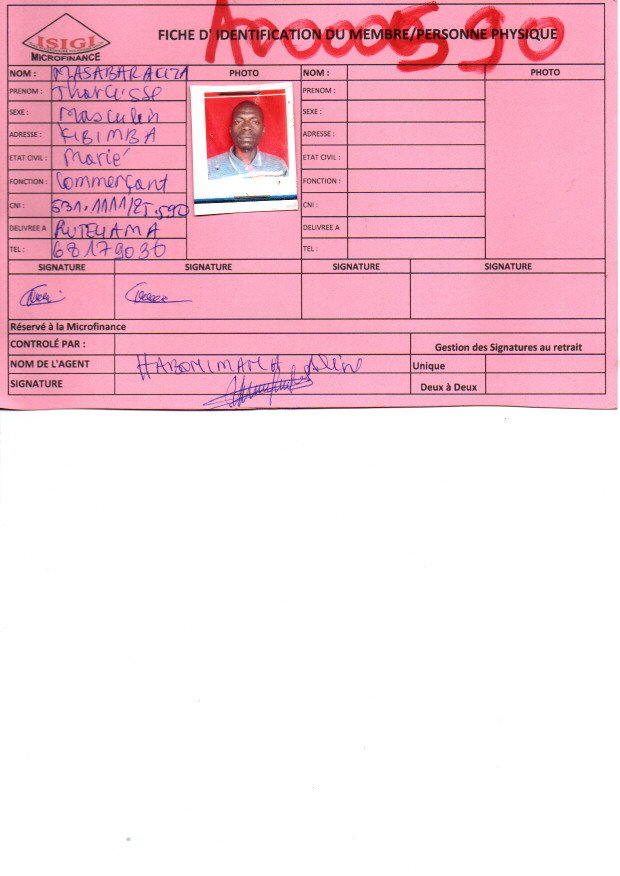 ISIGI
MICROFINANCE
FICHE D'IDENTIFICATION DU MEMBRE/PERSONNE PHYSIQUE
A0000590
NOM : MASABARAKIZA PHOTO NOM : PHOTO
PRENOM : Tharcisse PRENOM :
SEXE : Masculin SEXE :
ADRESSE : KIBIMBA ADRESSE :
ETAT CIVIL : Marié ETAT CIVIL :
FONCTION : Commerçant FONCTION :
CNI : 531.1111/25.590 CNI :
DELIVREE A RUTEGAMA DELIVREE A
TEL : 68179030 TEL :
SIGNATURE SIGNATURE SIGNATURE SIGNATURE
Réservé à la Microfinance
CONTROLÉ PAR : Gestion des Signatures au retrait
NOM DE L'AGENT HABONIMANA Aline Unique
SIGNATURE Deux à Deux